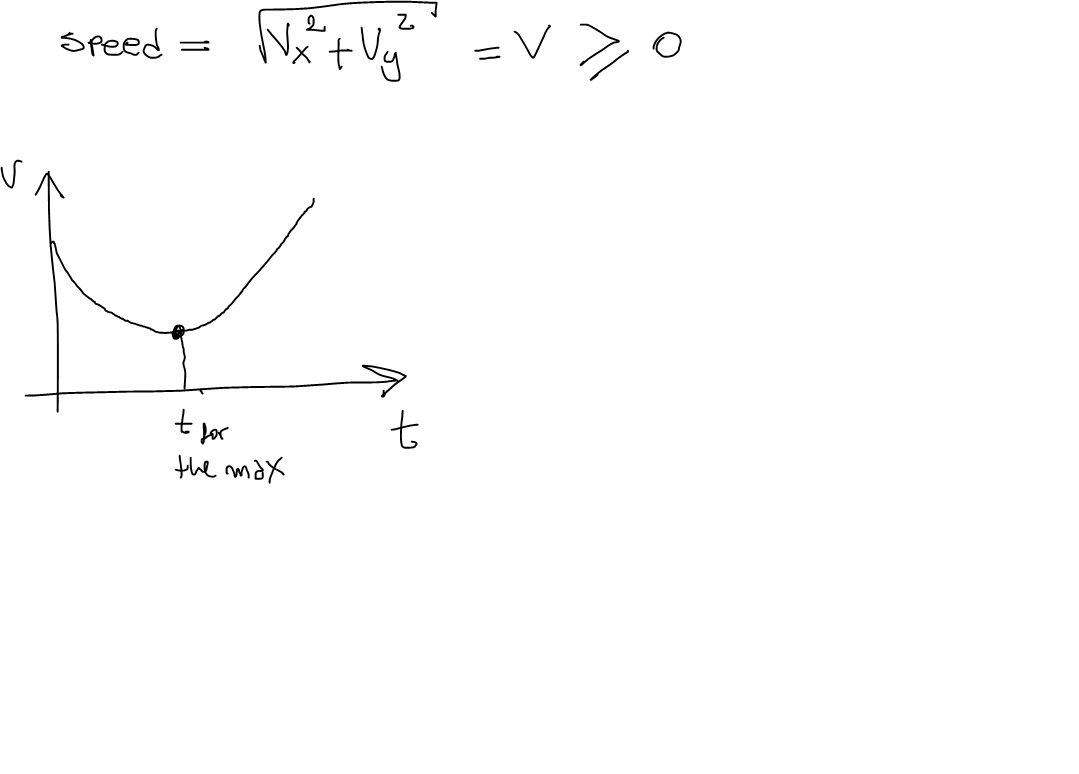 speed = √Vx² + Vy² = V ⩾ 0
V
t for
the max
t